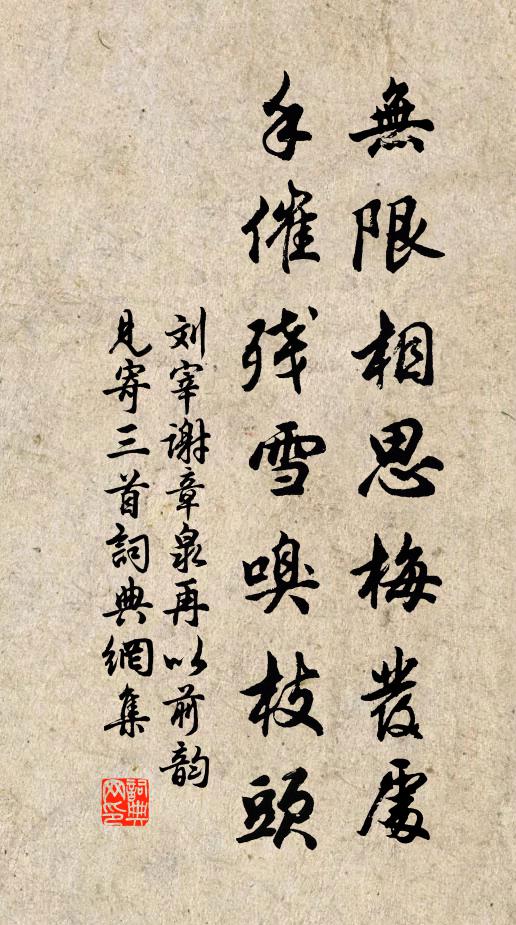 無限相思梅發處
手催残雪嗅枝頭
刘宰谢章泉再以前韵
見寄三首詞典網集
詞典
网印